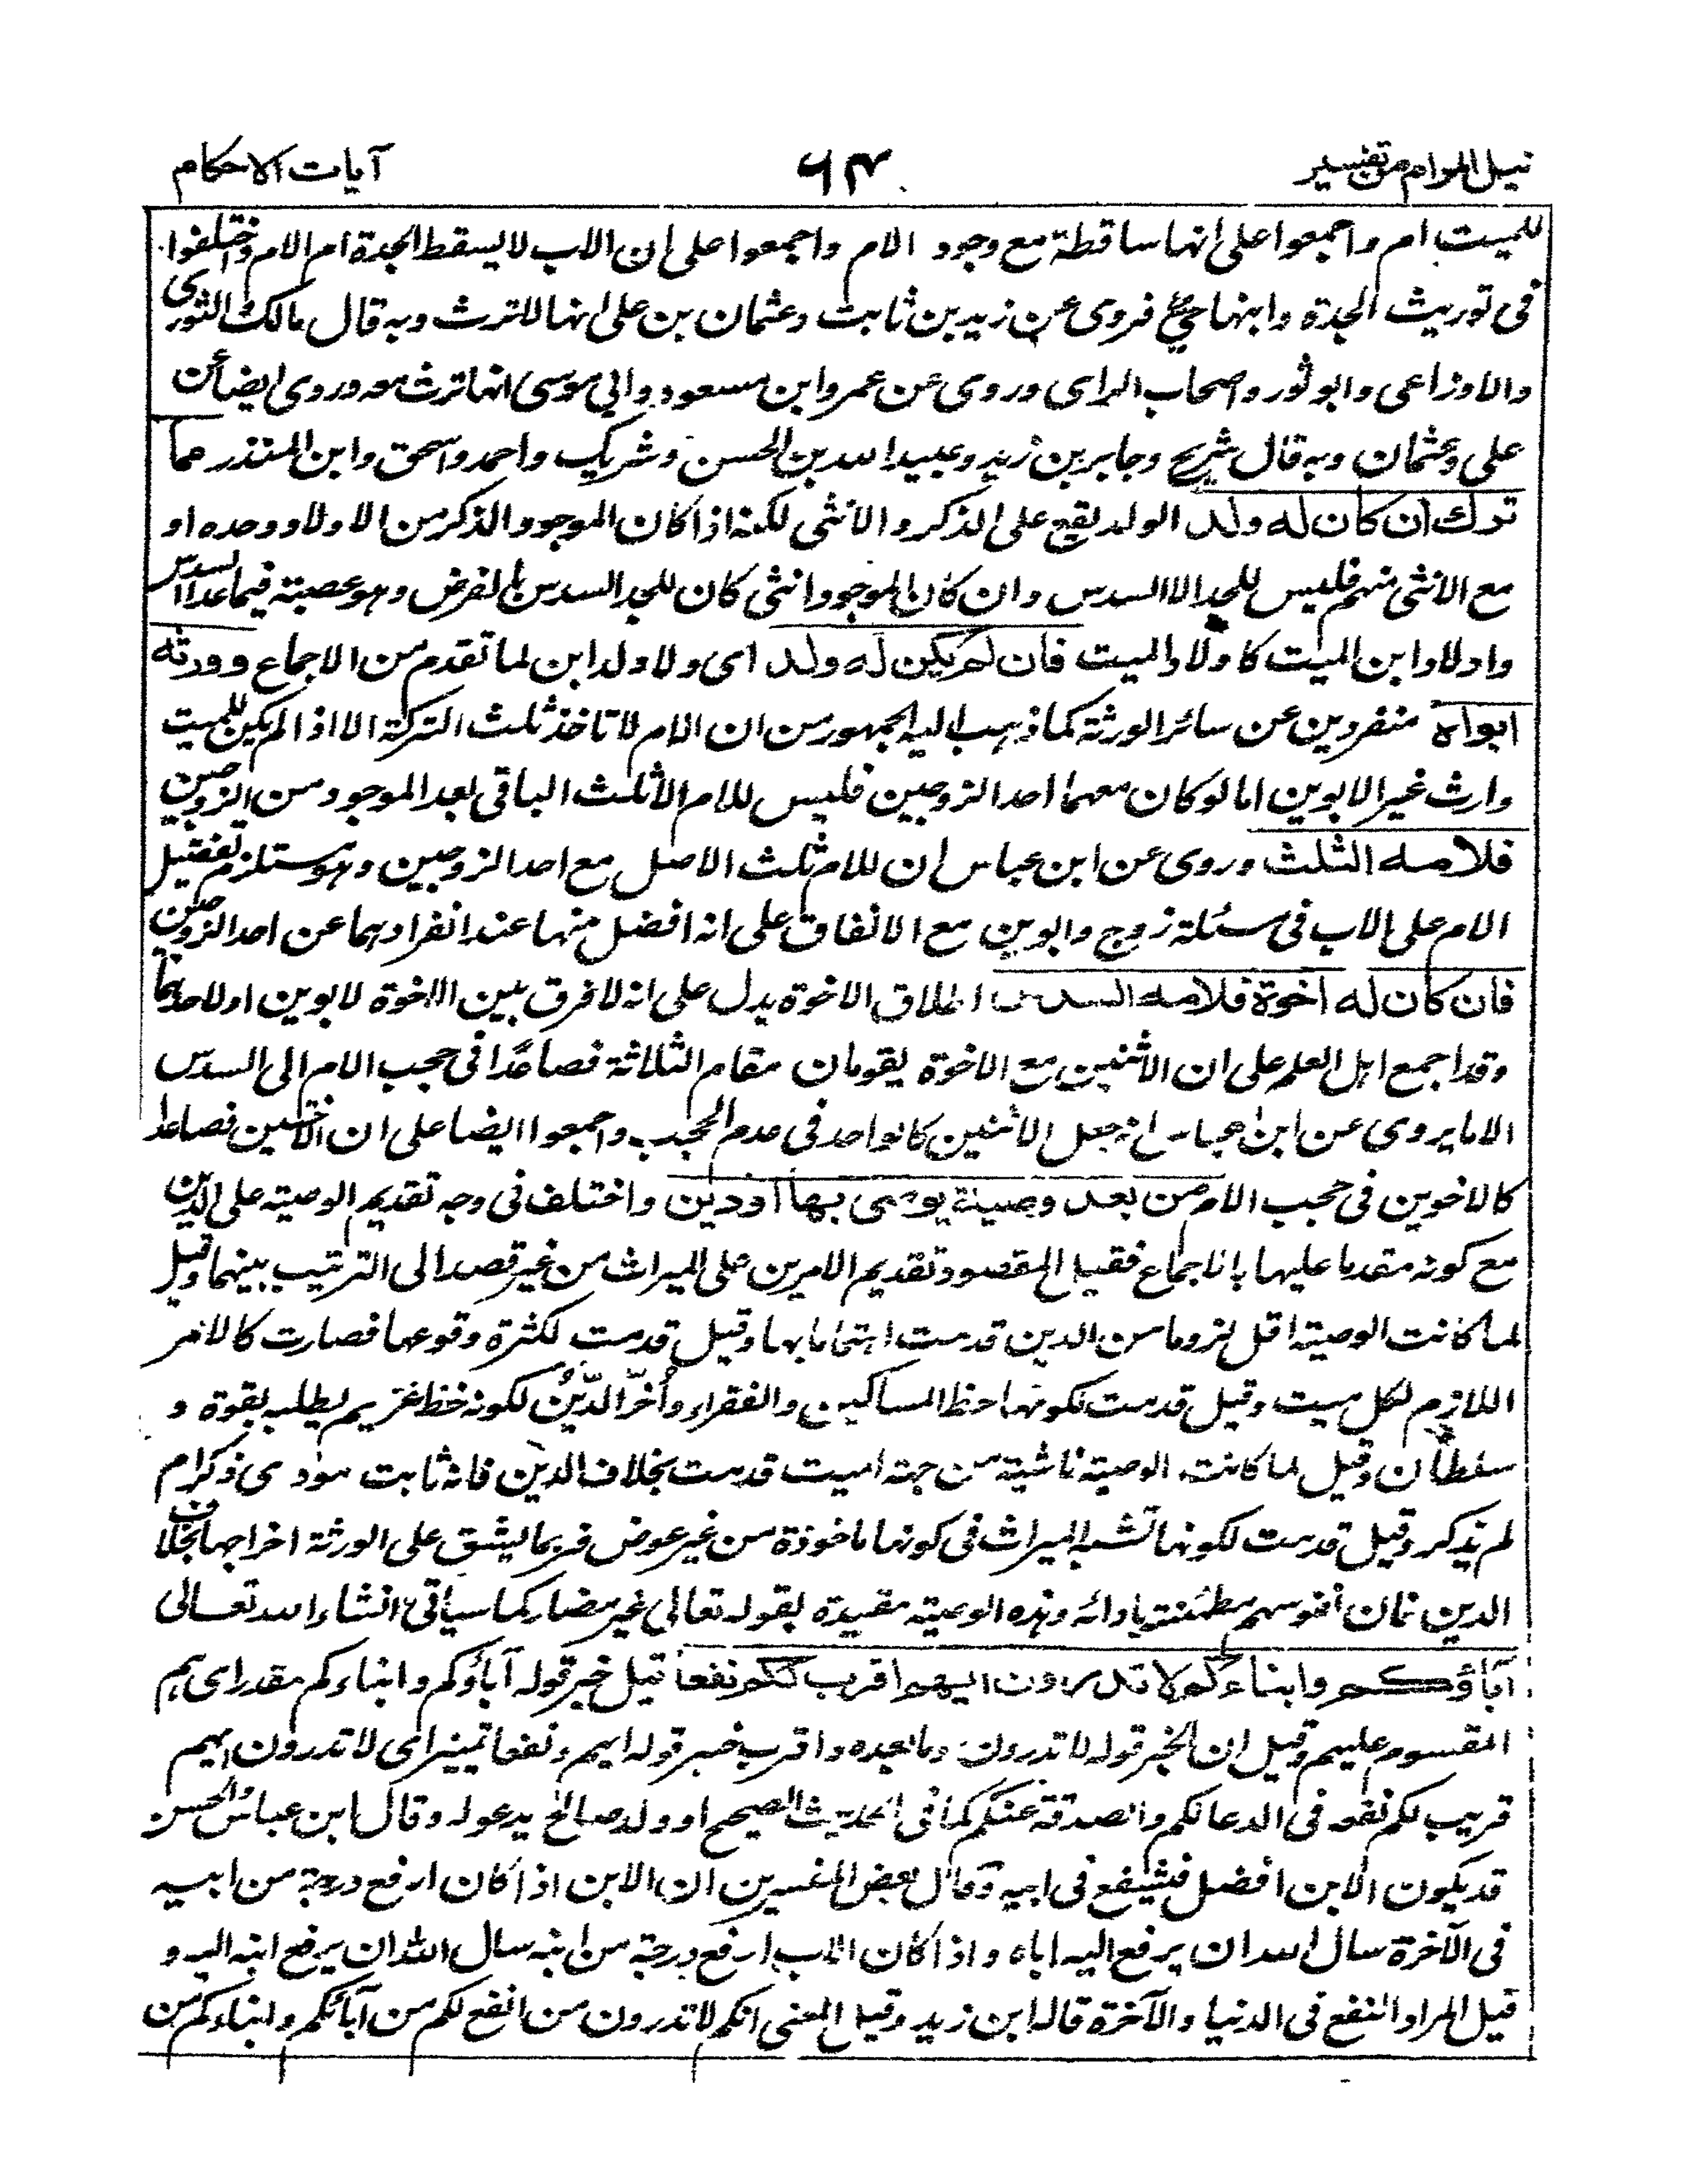 نيل المرام من تفسير ٦٤ آيات الاحكام
للميت ام واجمعوا على انها ساقطة مع وجود الام واجمعوا على ان الاب لا يسقط الجدة ام الام واختلفوا
فى توريث الجدة وابنها حي فروى عن زيد بن ثابت وعثمان بن على انها لا ترث وبه قال مالك الثورى
والاوزاعى وابو ثور واصحاب الراى وروى عن عمر وابن مسعود وابي موسى انها ترث معه وروى ايضا عن
على وعثمان وبه قال شريح وجابر بن زيد وعبيد الله بن الحسن وشريك واحمد واسحق وابن المنذر مما
ترك ان كان له ولد الولد يقع على الذكر والانثى لكنه اذا كان الموجود الذكر من الاولاد وحده او
مع الانثى منهم فليس للجد الا السدس وان كان الموجود انثى كان للجد السدس بالفرض وهو عصبة فيما عدا السدس
واولاد ابن الميت كاولاد الميت فان لم يكن له ولد اى ولا ولد ابن لما تقدم من الاجماع وورثه
ابواه منفردين عن سائر الورثة كما ذهب اليه الجمهور من ان الام لا تاخذ ثلث التركة الا اذا لم يكن للميت
وارث غير الابوين اما لو كان معهما احد الزوجين فليس للام الا ثلث الباقى بعد الموجود من الزوجين
فلامه الثلث وروى عن ابن عباس ان للام ثلث الاصل مع احد الزوجين وهو يستلزم تفضيل
الام على الاب فى مسئلة زوج وابوين مع الاتفاق على انه افضل منها عند انفرادهما عن احد الزوجين
فان كان له اخوة فلامه السدس اطلاق الاخوة يدل على انه لا فرق بين الاخوة لابوين او لاحدهما
وقد اجمع اهل العلم على ان الاثنين مع الاخوة يقومان مقام الثلاثة فصاعدا فى حجب الام الى السدس
الا ما يروى عن ابن عباس انه جعل الاثنين كالواحد فى عدم الحجب واجمعوا ايضا على ان الاختين فصاعدا
كالاخوين فى حجب الام من بعد وصية يوصى بها او دين واختلف فى وجه تقديم الوصية على الدين
مع كونه مقدما عليها بالاجماع فقيل المقصود تقديم الامرين على الميراث من غير قصد الى الترتيب بينهما وقيل
لما كانت الوصية اقل لزوما من الدين قدمت اهتماما بها وقيل قدمت لكثرة وقوعها فصارت كالامر
اللازم لكل ميت وقيل قدمت لكونها حظ المساكين والفقراء وأُخّر الدّينُ لكونه حظ غريم يطلبه بقوة و
سلطان وقيل لما كانت الوصية ناشية من جهة الميت قدمت بخلاف الدين فانه ثابت مودى ذكر ام
لم يذكر وقيل قدمت لكونها تشبه الميراث فى كونها ماخوذة من غير عوض فربما يشق على الورثة اخراجها بخلاف
الدين فان نفوسهم مطمئنة بادائه وهذه الوصية مقيدة بقوله تعالى غير مضار كما سياتى انشاء الله تعالى
آباؤكم وابناءكم لا تدرون ايهم اقرب لكم نفعا قيل خبر قوله آباؤكم وابناءكم مقدر اى هم
المقسوم عليهم وقيل ان الخبر قوله لا تدرون وما بعده واقرب خبر قوله ايهم ونفعا تمييز اى لا تدرون ايهم
قريب لكم نفعه فى الدعا لكم والصدقة عنكم كما فى الحديث الصحيح او ولد صالح يدعو له وقال ابن عباس والحسن
قد يكون الابن افضل فيشفع فى ابيه وقال بعض المفسرين ان الابن اذا كان ارفع درجة من ابيه
فى الآخرة سال الله ان يرفع اليه اباه واذا كان الاب ارفع درجة من ابنه سال الله ان يرفع ابنه اليه و
قيل المراد النفع فى الدنيا والآخرة قاله ابن زيد وقيل المعنى انكم لا تدرون من انفع لكم من آبائكم وابناءكم من